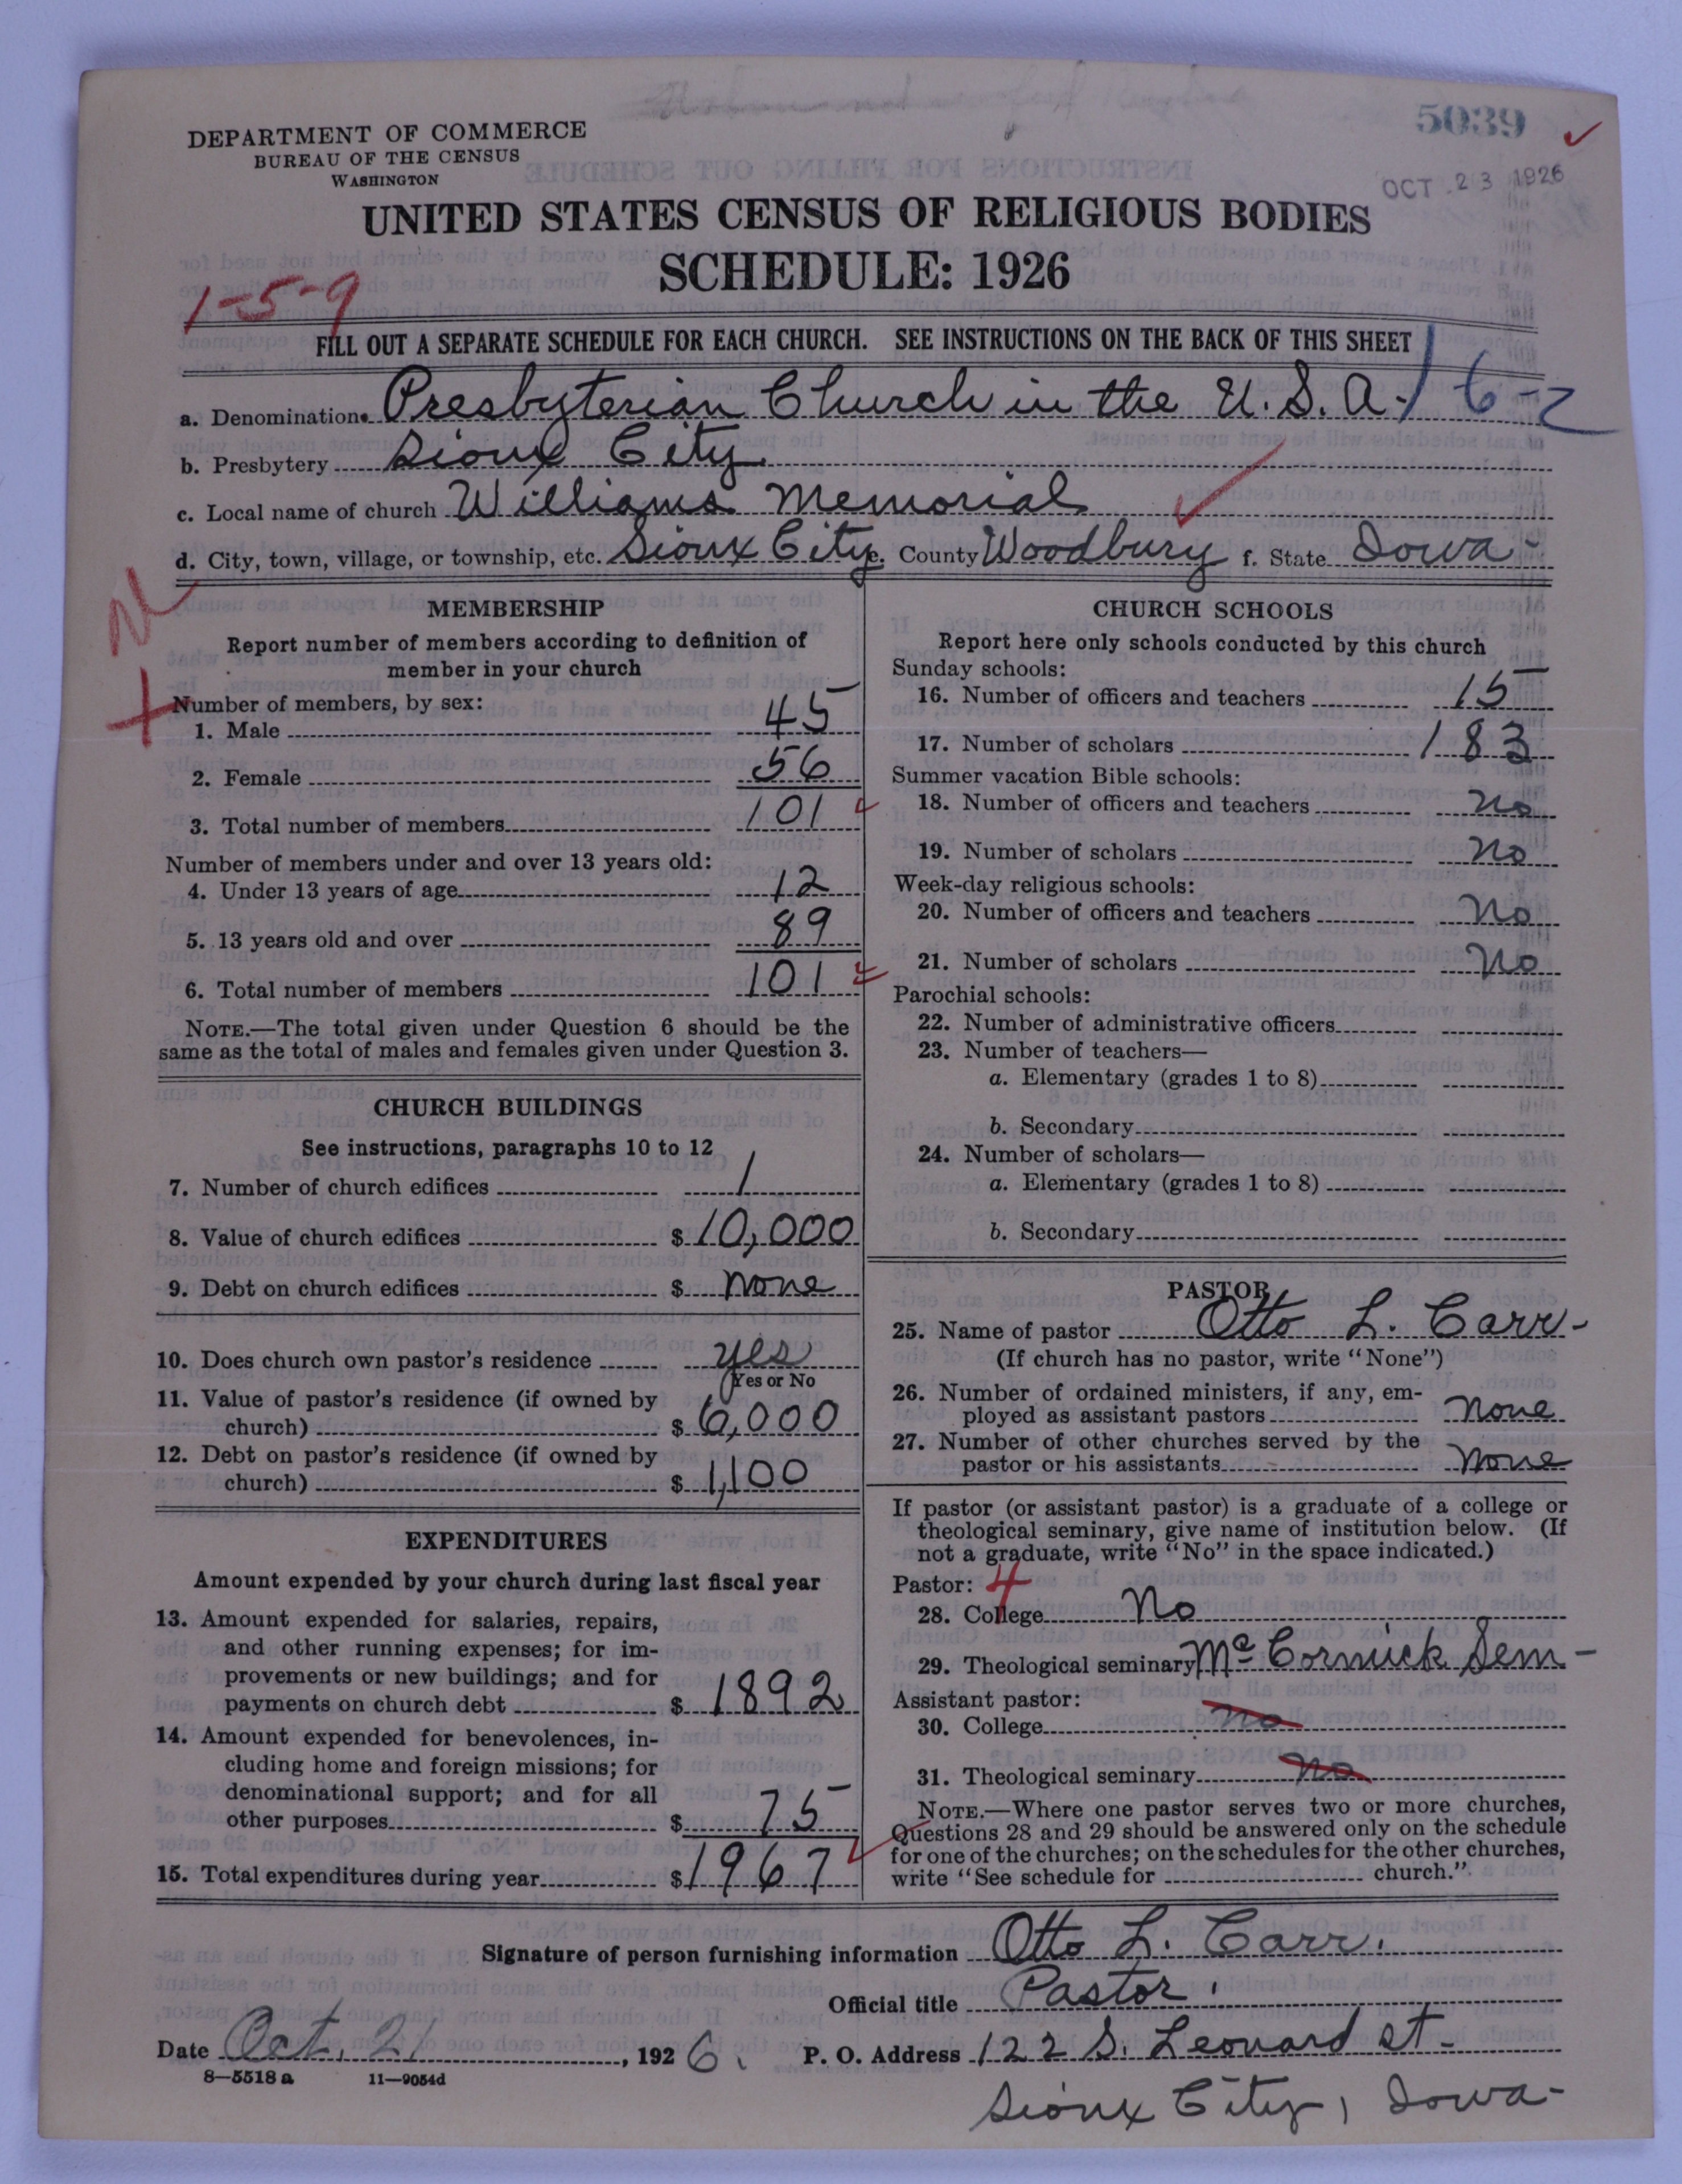 5039
OCT 23 1926
DEPARTMENT OF COMMERCE
BUREAU OF THE CENSUS
WASHINGTON
UNITED STATES CENSUS OF RELIGIOUS BODIES
SCHEDULE: 1926
1-5-9
FILL OUT A SEPARATE SCHEDULE FOR EACH CHURCH. SEE INSTRUCTIONS ON THE BACK OF THIS SHEET
a. Denomination Presbyterian Church in the U.S.A. 16-2
b. Presbytery Sioux City
c. Local name of church Williams Memorial
d. City, town, village, or township, etc. Sioux City e. County Woodbury f. State Iowa-
MEMBERSHIP
Report number of members according to definition of
member in your church
Number of members, by sex:
1. Male 45
2. Female 56
3. Total number of members 101
Number of members under and over 13 years old:
4. Under 13 years of age 12
5. 13 years old and over 89
6. Total number of members 101
NOTE.—The total given under Question 6 should be the
same as the total of males and females given under Question 3.
CHURCH BUILDINGS
See instructions, paragraphs 10 to 12
7. Number of church edifices 1
8. Value of church edifices $ 10,000
9. Debt on church edifices $ none
10. Does church own pastor's residence yes
(Yes or No
11. Value of pastor's residence (if owned by
church) $ 6,000
12. Debt on pastor's residence (if owned by
church) $ 1,100
EXPENDITURES
Amount expended by your church during last fiscal year
13. Amount expended for salaries, repairs,
and other running expenses; for im-
provements or new buildings; and for
payments on church debt $ 1892
14. Amount expended for benevolences, in-
cluding home and foreign missions; for
denominational support; and for all
other purposes $ 75
15. Total expenditures during year $ 1967
CHURCH SCHOOLS
Report here only schools conducted by this church
Sunday schools:
16. Number of officers and teachers 15
17. Number of scholars 183
Summer vacation Bible schools:
18. Number of officers and teachers no
19. Number of scholars no
Week-day religious schools:
20. Number of officers and teachers No
21. Number of scholars No
Parochial schools:
22. Number of administrative officers
23. Number of teachers—
a. Elementary (grades 1 to 8)
b. Secondary
24. Number of scholars—
a. Elementary (grades 1 to 8)
b. Secondary
PASTOR
25. Name of pastor Otto L. Carr-
(If church has no pastor, write "None")
26. Number of ordained ministers, if any, em-
ployed as assistant pastors None
27. Number of other churches served by the
pastor or his assistants None
If pastor (or assistant pastor) is a graduate of a college or
theological seminary, give name of institution below. (If
not a graduate, write "No" in the space indicated.)
Pastor: 4
28. College No
29. Theological seminary McCormick Sem-
Assistant pastor:
30. College no
31. Theological seminary no
NOTE.—Where one pastor serves two or more churches,
Questions 28 and 29 should be answered only on the schedule
for one of the churches; on the schedules for the other churches,
write "See schedule for church."
Signature of person furnishing information Otto L. Carr.
Official title Pastor.
Date Oct. 21, 1926. P. O. Address 122 S. Leonard St-
8—5518 a 11—9054d
Sioux City, Iowa-